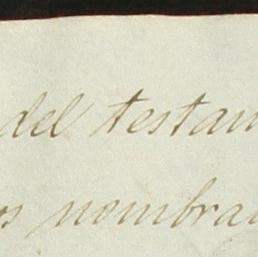 del testam
os nombra